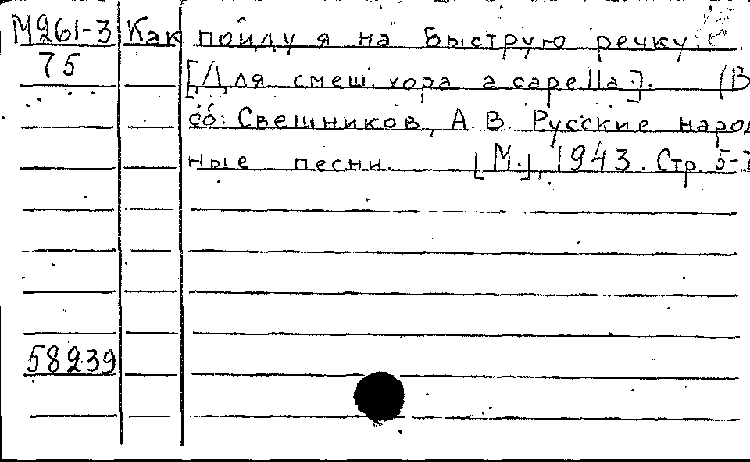 М261-3 Как пойду я на быструю речку
75 [Для смеш. хора a capella]. (В
сб: Свешников, А. В. Русские народ
ные песни. [М.], 1943. Стр. 5-
58239